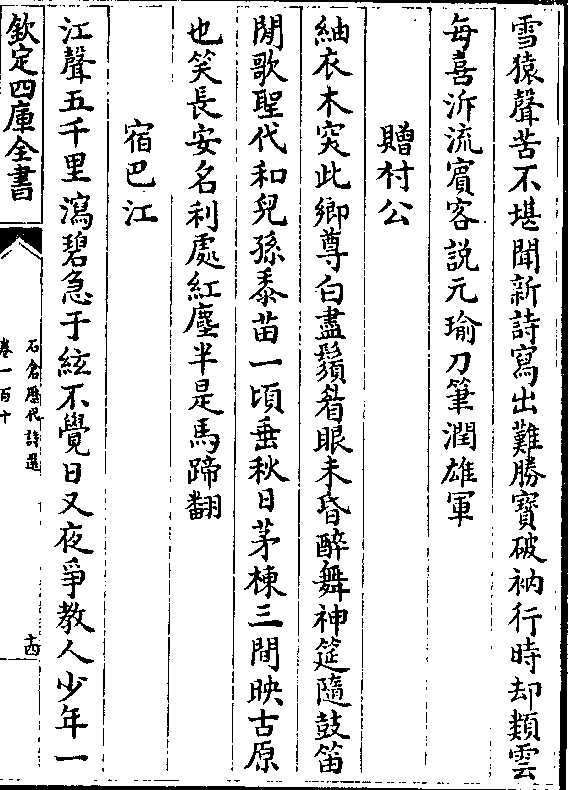 雪猿聲苦不堪聞新詩寫出難勝寶破衲行時却類雲
每喜泝流賓客説元瑜刀筆潤雄軍
贈村公
紬衣木突此鄉尊白盡鬚眉眼未昏醉舞神筵隨鼓笛
閒歌聖代和兒孫黍苗一頃垂秋日茅棟三間映古原
也笑長安名利處紅塵半是馬蹄翻
宿巴江
江聲五千里瀉碧急于絃不覺日又夜爭教人少年一
欽定四庫全書
石倉歷代詩選
卷一百十
十四